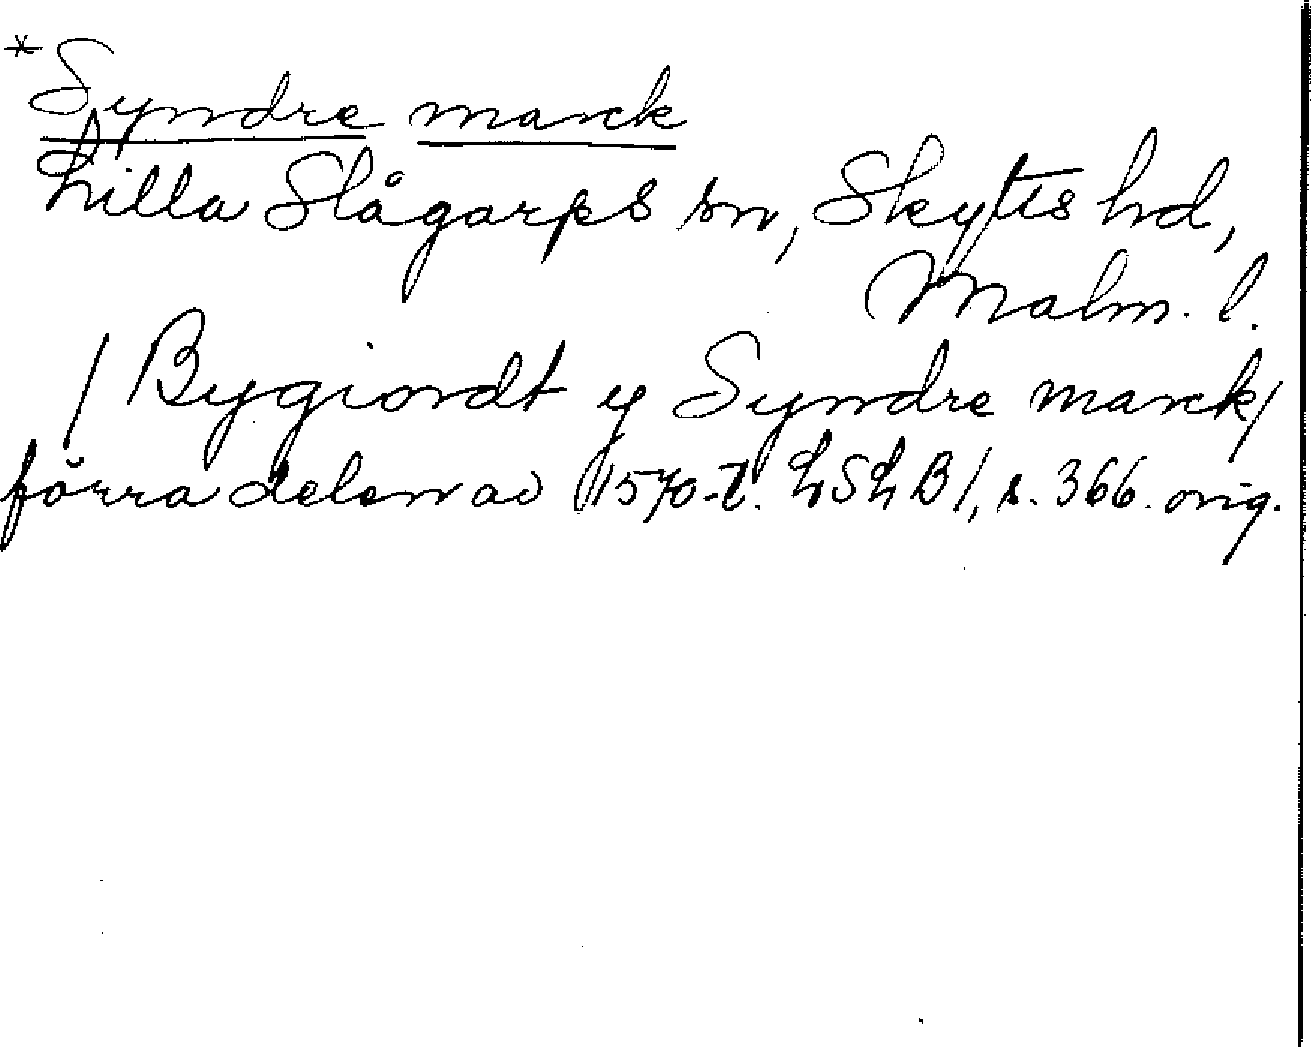 * Syndre marck
Lilla Slågarps sn, Skytts hd,
Malm. l.
/ Bygiordt y Syndre marck/
förra delen av 1570-t. LSLB1, s. 366. orig.